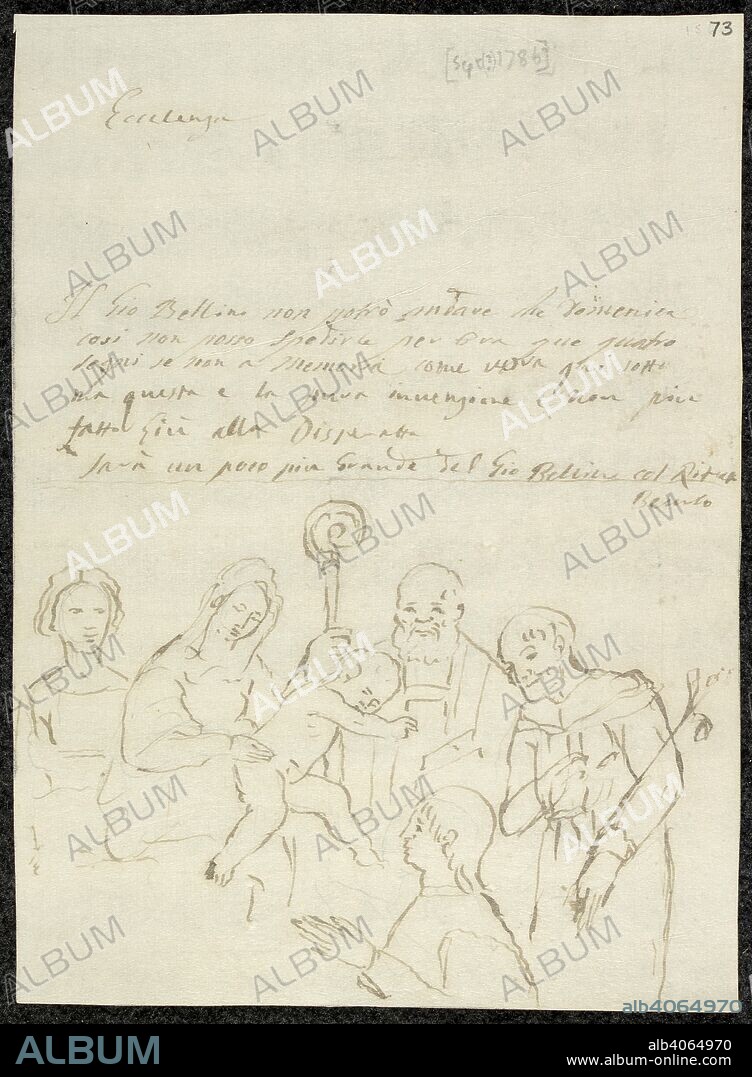 73
[Sept(?) 1786]
Eccelenza
Il Gio Bellino non potrò mandare che Domenica
così non posso spedirle per Ora que quatro
segni se non a Memoria come vedrà qui sotto
ma questa e la invenzione
fatto Giù alla Disperatta
Sarà un poco più Grande del Gio Bellino col
ALBUM
alb4064970
ALBUM
alb4064970
www.album-online.com